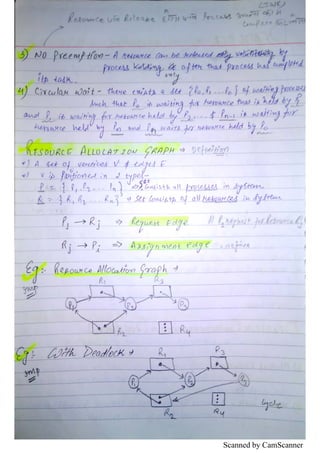 3) NO Preemption - A resource can be released only voluntarily by
process holding it after that process has completed
its task. only
4) Circular Wait - there exists a set {P0, P1 ... Pn} of waiting processes
such that P0 is waiting for resource that is held by P1
and P1 is waiting for resource held by P2 ..... Pn-1 is waiting for
resource held by Pn and Pn waits for resource held by P0.
RESOURCE ALLOCATION GRAPH → Definition
A set of vertices V & edges E
V is partitioned in 2 types -
P = { P1, P2 ... Pn } → set consists all processes in system
R = { R1, R2 ... Rm } → set consists of all resources in system
Pi → Rj ⇒ Request edge
Rj → Pi ⇒ Assignment edge
Eg:- Resource Allocation Graph →
imp
R1 R3
P1 P2 P3
R2 R4
Eg:- With Deadlock →
imp
R1 R3
P1 P2 P3
R2 R4
cycle
Scanned by CamScanner